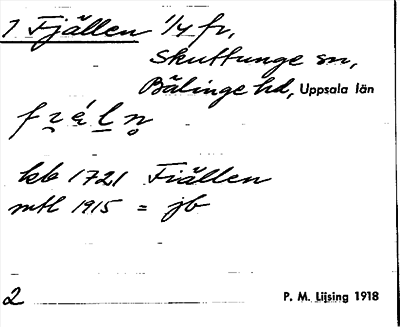 1 Fjällen 1/4 fr,
Skuttunge sn,
Bälinge hd, Uppsala län
kb 1721 Fiällen
mtl 1915 = jb
2 P. M. Lijsing 1918